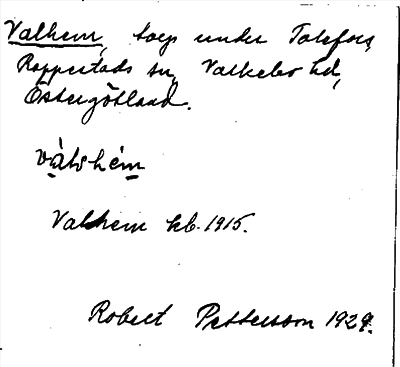 Valhem, torp under Tolefors,
Rappestads sn, Valkebo hd,
Östergötland.
vàlshém
Valhem kb. 1915.
Robert Pettersson 1929.